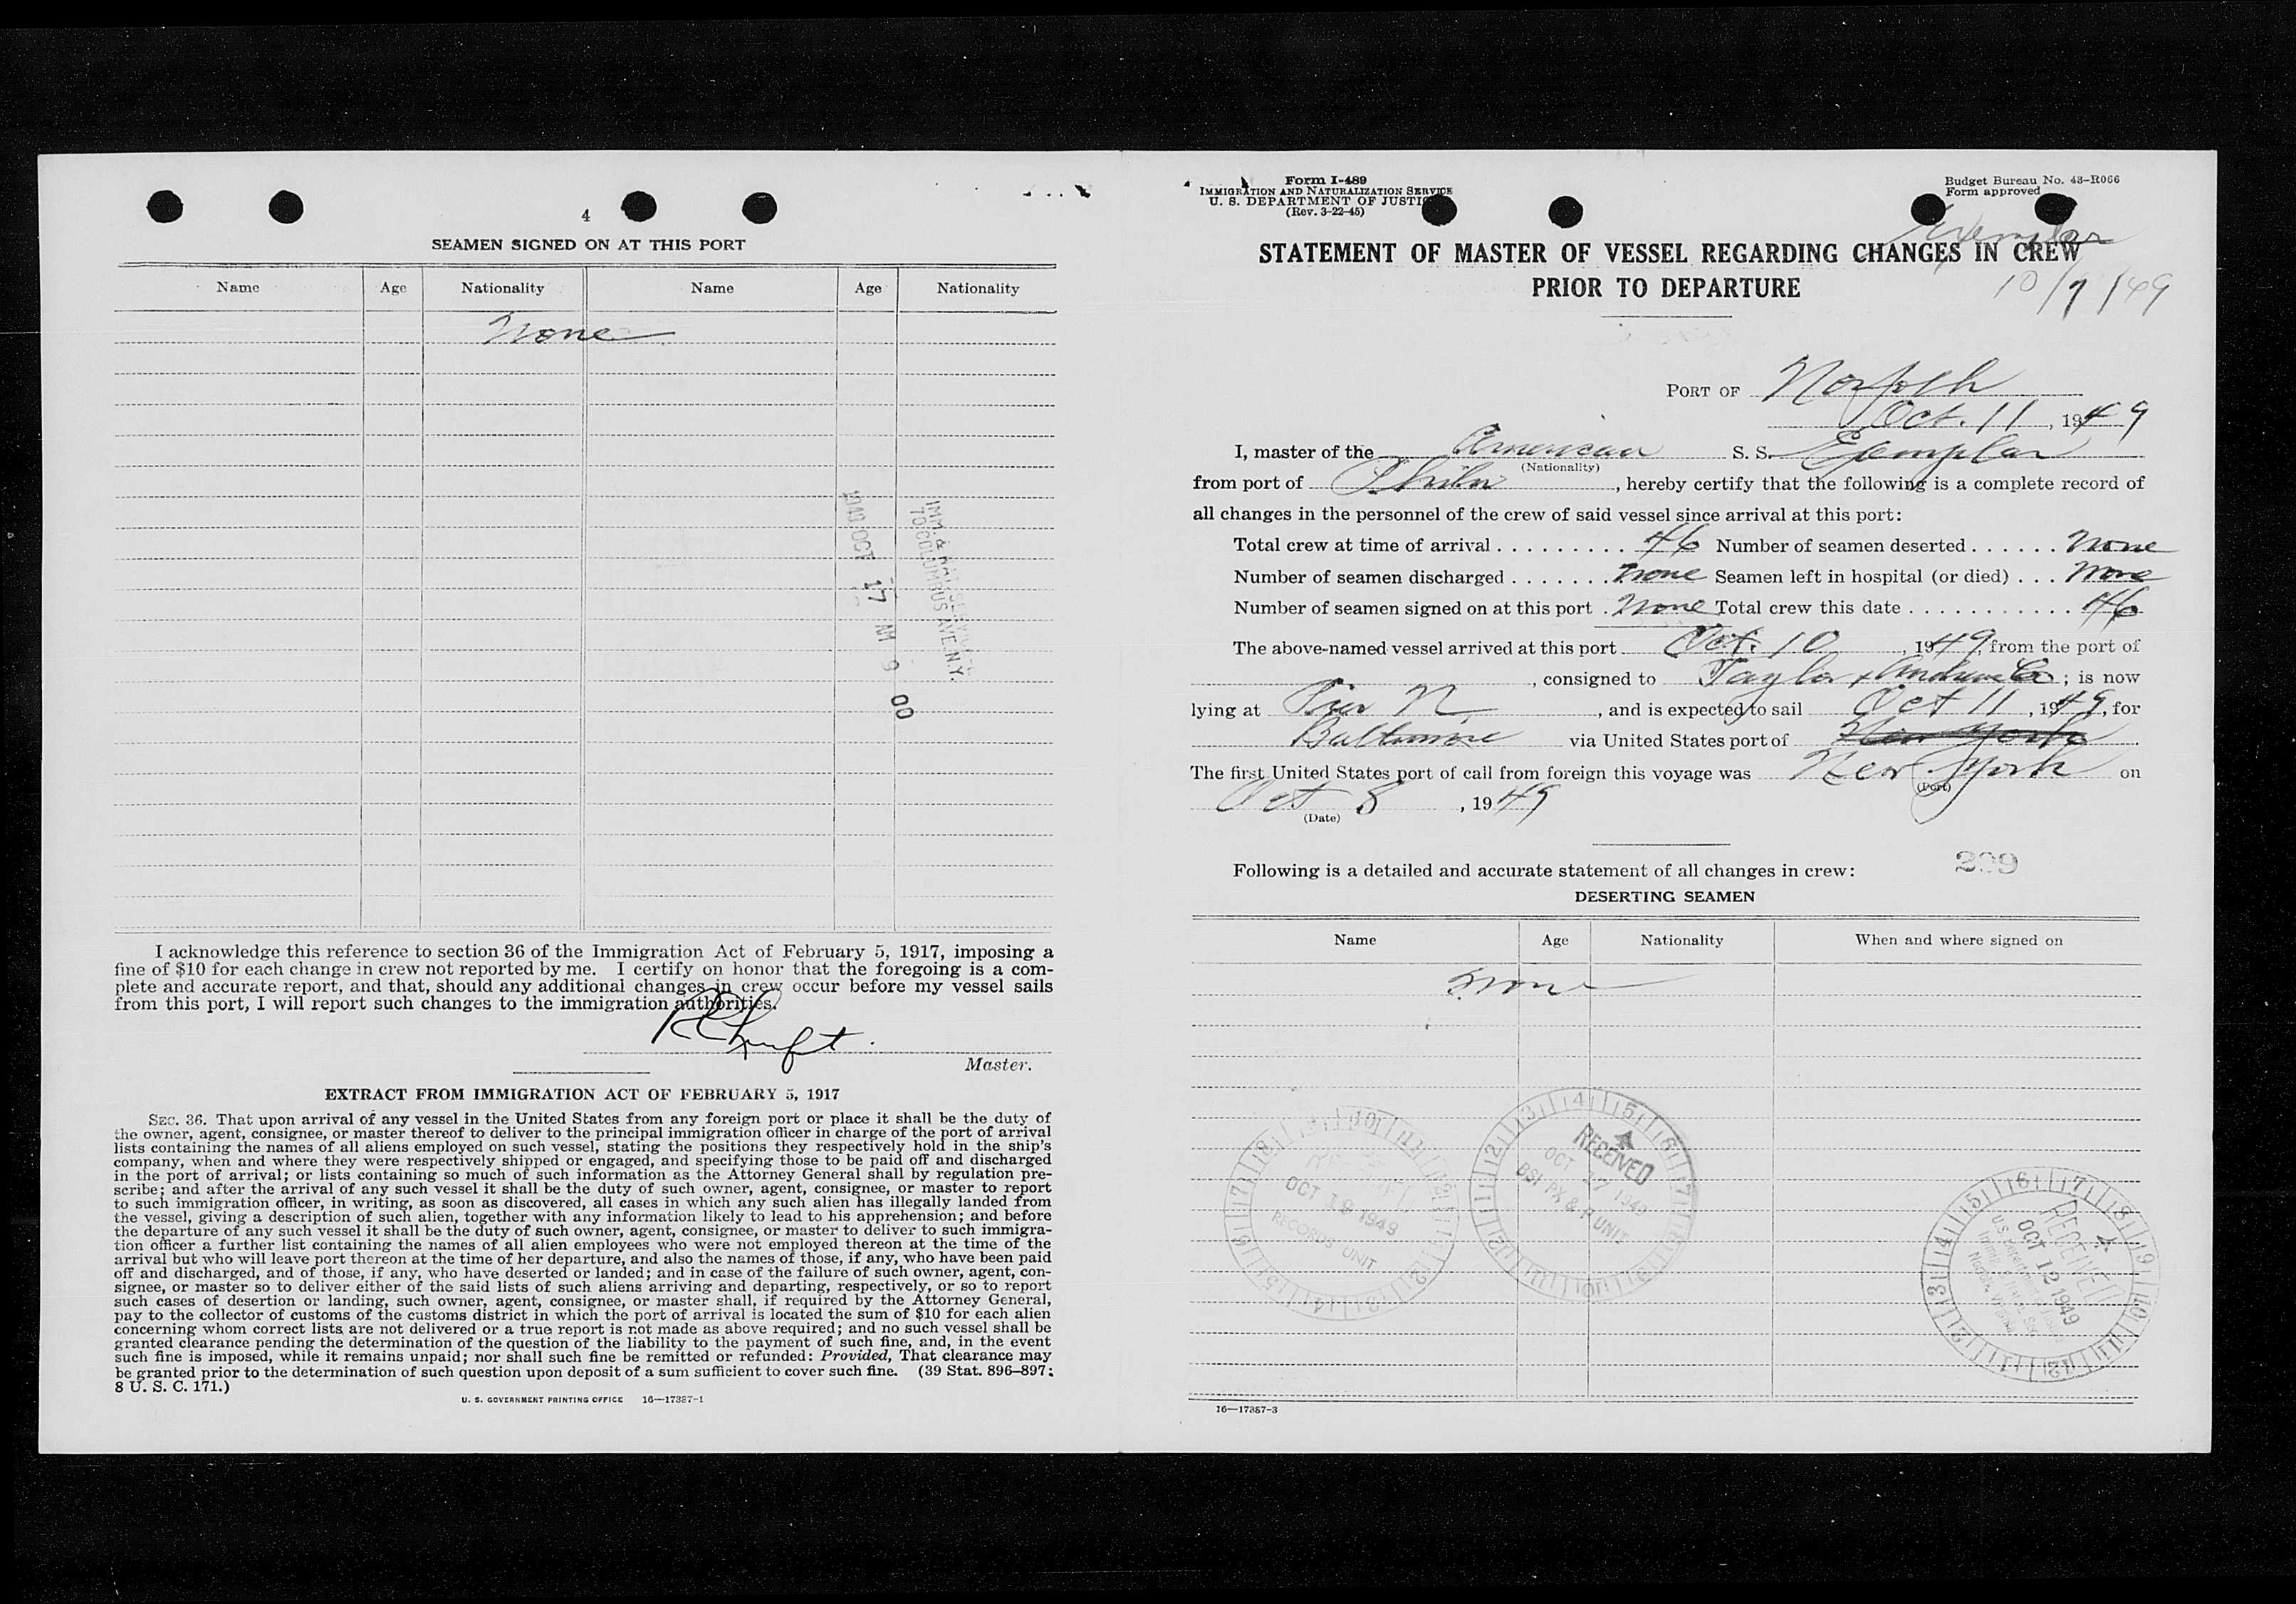 4
SEAMEN SIGNED ON AT THIS PORT
Name Age Nationality Name Age Nationality
None
1949 OCT 17 AM 9 00
IMM. & NAT. SERVICE
70 COLUMBUS AVE. N.Y.
I acknowledge this reference to section 36 of the Immigration Act of February 5, 1917, imposing a
fine of $10 for each change in crew not reported by me. I certify on honor that the foregoing is a com-
plete and accurate report, and that, should any additional changes in crew occur before my vessel sails
from this port, I will report such changes to the immigration authorities.
Master.
EXTRACT FROM IMMIGRATION ACT OF FEBRUARY 5, 1917
SEC. 36. That upon arrival of any vessel in the United States from any foreign port or place it shall be the duty of
the owner, agent, consignee, or master thereof to deliver to the principal immigration officer in charge of the port of arrival
lists containing the names of all aliens employed on such vessel, stating the positions they respectively hold in the ship's
company, when and where they were respectively shipped or engaged, and specifying those to be paid off and discharged
in the port of arrival; or lists containing so much of such information as the Attorney General shall by regulation pre-
scribe; and after the arrival of any such vessel it shall be the duty of such owner, agent, consignee, or master to report
to such immigration officer, in writing, as soon as discovered, all cases in which any such alien has illegally landed from
the vessel, giving a description of such alien, together with any information likely to lead to his apprehension; and before
the departure of any such vessel it shall be the duty of such owner, agent, consignee, or master to deliver to such immigra-
tion officer a further list containing the names of all alien employees who were not employed thereon at the time of the
arrival but who will leave port thereon at the time of her departure, and also the names of those, if any, who have been paid
off and discharged, and of those, if any, who have deserted or landed; and in case of the failure of such owner, agent, con-
signee, or master so to deliver either of the said lists of such aliens arriving and departing, respectively, or so to report
such cases of desertion or landing, such owner, agent, consignee, or master shall, if required by the Attorney General,
pay to the collector of customs of the customs district in which the port of arrival is located the sum of $10 for each alien
concerning whom correct lists are not delivered or a true report is not made as above required; and no such vessel shall be
granted clearance pending the determination of the question of the liability to the payment of such fine, and, in the event
such fine is imposed, while it remains unpaid; nor shall such fine be remitted or refunded: Provided, That clearance may
be granted prior to the determination of such question upon deposit of a sum sufficient to cover such fine. (39 Stat. 896–897;
8 U. S. C. 171.)
U. S. GOVERNMENT PRINTING OFFICE 16—17387-1
Form I-489
IMMIGRATION AND NATURALIZATION SERVICE
U. S. DEPARTMENT OF JUSTICE
(Rev. 3-22-45)
Budget Bureau No. 43-R066
Form approved
Exemplar
STATEMENT OF MASTER OF VESSEL REGARDING CHANGES IN CREW
PRIOR TO DEPARTURE
10/7/49
PORT OF Norfolk
Oct. 11, 1949
I, master of the American S. S. Exemplar
(Nationality)
from port of Phila, hereby certify that the following is a complete record of
all changes in the personnel of the crew of said vessel since arrival at this port:
Total crew at time of arrival . . . . . . . . . 46 Number of seamen deserted . . . . . . None
Number of seamen discharged . . . . . . . None Seamen left in hospital (or died) . . . None
Number of seamen signed on at this port . None Total crew this date . . . . . . . . . . . . 46
The above-named vessel arrived at this port Oct. 10, 1949 from the port of
, consigned to Taylor & Co; is now
lying at Pier N, and is expected to sail Oct 11, 1949, for
Baltimore via United States port of New York
The first United States port of call from foreign this voyage was New York on
(Port)
Oct 8, 1949
(Date)
Following is a detailed and accurate statement of all changes in crew: 299
DESERTING SEAMEN
Name Age Nationality When and where signed on
None
OCT 19 1949
RECORDS UNIT
RECEIVED
OCT 17 1949
BSI PX & R UNIT
RECEIVED
OCT 12 1949
16—17387-3